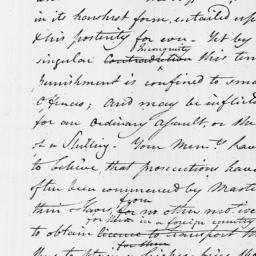 in its harshest form, entailed up
& his posterity for ever. Yet by
incongruity
singular contradiction this ten
punishment is confined to sma
offences; and may be inflicted
for an Ordinary Assault, or the
of a Shilling. Your Mem.ts have
to believe, that prosecutions have
often been commenced by Maste
from
their Slaves, for no other motive
for them in a foreign country
to obtain license to transport th